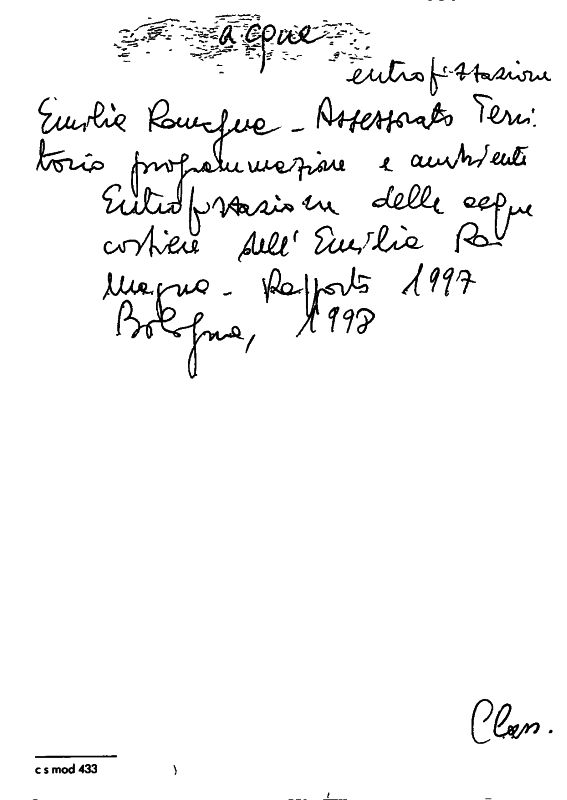 acque
eutrofizzazione
Emilia Romagna - Assessorato Terri
torio programmazione e ambiente
Eutrofizzazione delle acque
costiere dell' Emilia Ro
magna - Rapporto 1997
Bologna, 1998
Class.
c s mod 433